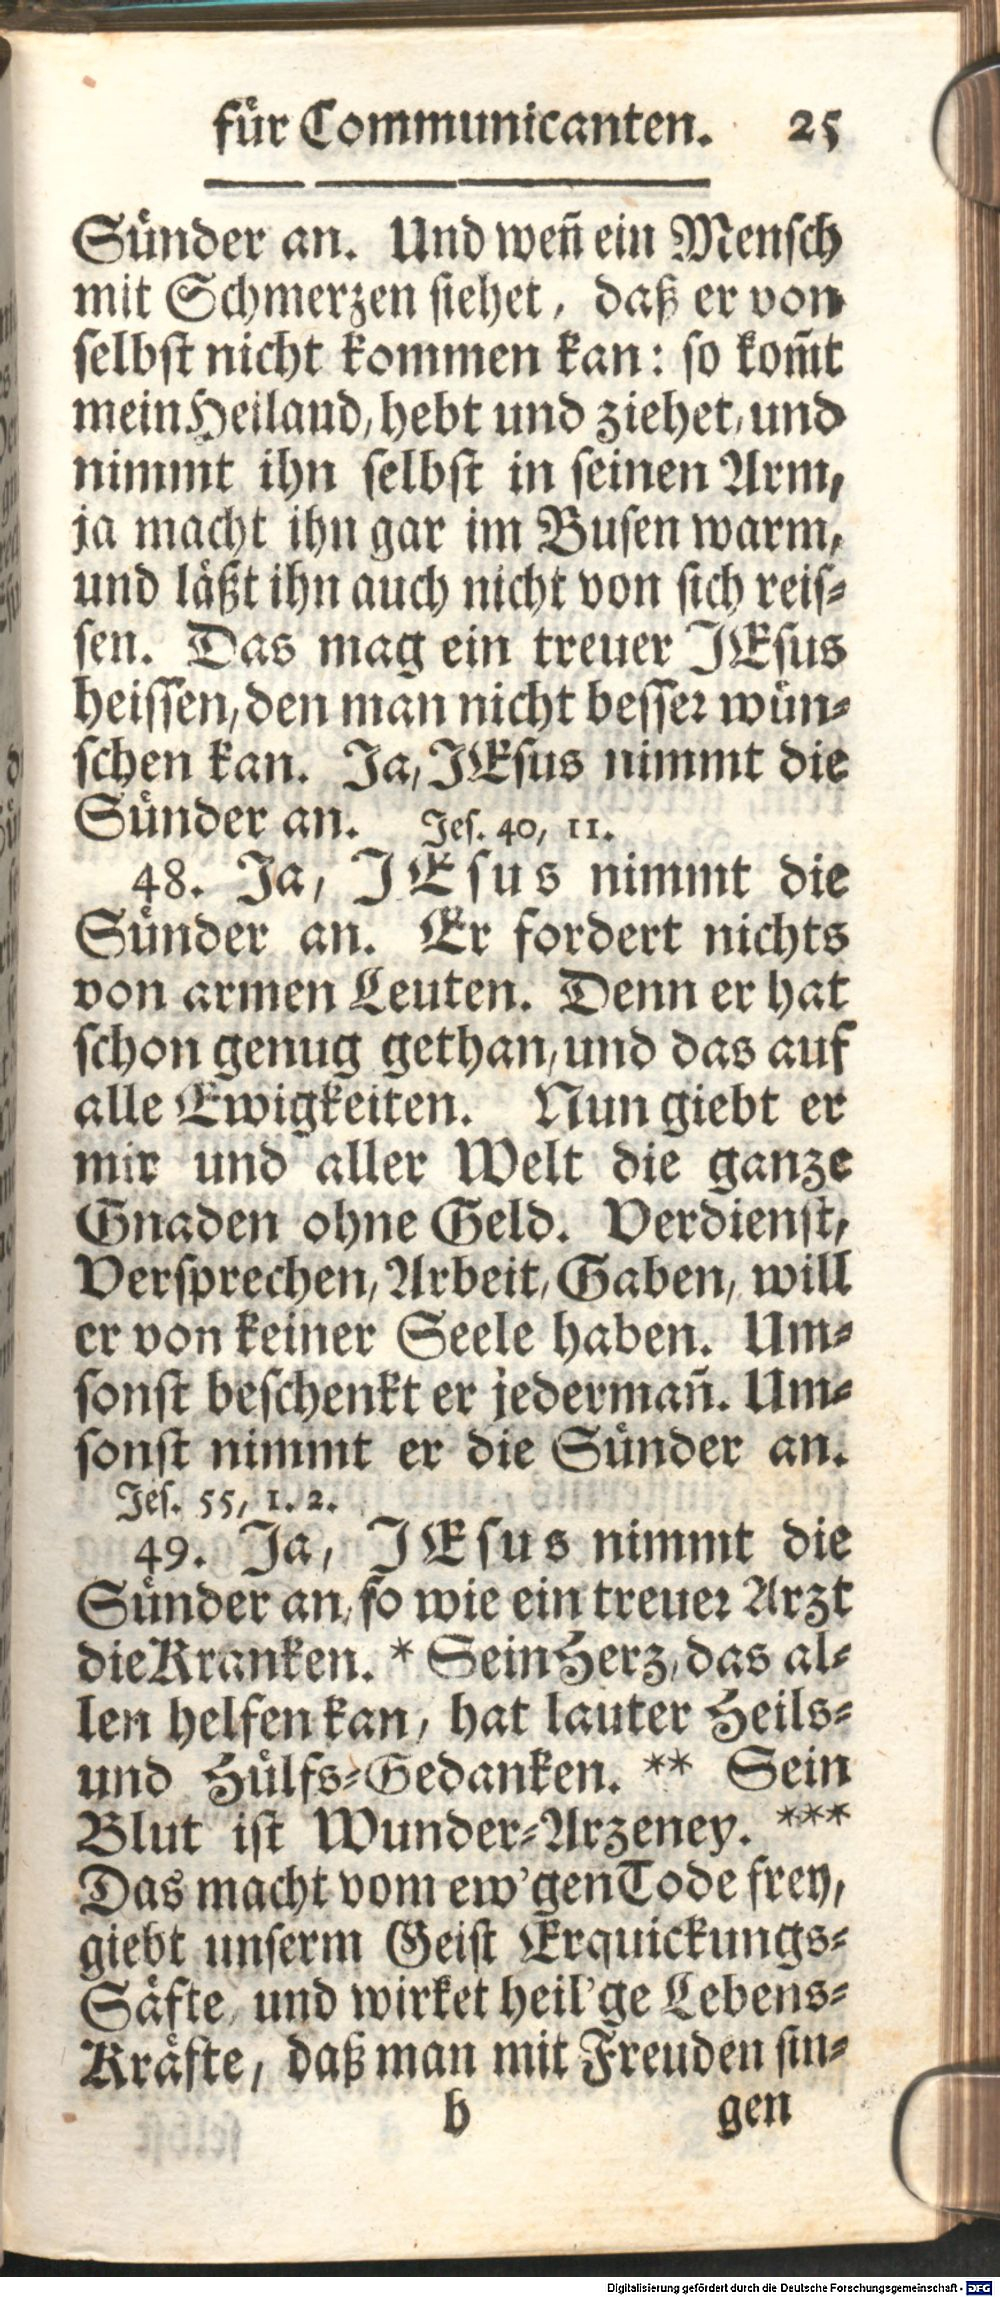 für Communicanten. 25
Sünder an. Und weñ ein Mensch
mit Schmerzen siehet, daß er von
selbst nicht kommen kan: so kom̃t
mein Heiland, hebt und ziehet, und
nimmt ihn selbst in seinen Arm,
ja macht ihn gar im Busen warm,
und läßt ihn auch nicht von sich reis-
sen. Das mag ein treuer JEsus
heissen, den man nicht besser wün-
schen kan. Ja, JEsus nimmt die
Sünder an. Jes. 40, 11.
48. Ja, JEsus nimmt die
Sünder an. Er fordert nichts
von armen Leuten. Denn er hat
schon genug gethan, und das auf
alle Ewigkeiten. Nun giebt er
mir und aller Welt die ganze
Gnaden ohne Geld. Verdienst,
Versprechen, Arbeit, Gaben, will
er von keiner Seele haben. Um-
sonst beschenkt er jedermañ. Um-
sonst nimmt er die Sünder an.
Jes. 55, 1. 2.
49. Ja, JEsus nimmt die
Sünder an, so wie ein treuer Arzt
die Kranken. * Sein Herz, das al-
len helfen kan, hat lauter Heils-
und Hülfs-Gedanken. ** Sein
Blut ist Wunder-Arzeney. ***
Das macht vom ew'gen Tode frey,
giebt unserm Geist Erquickungs-
Säfte, und wirket heil'ge Lebens-
Kräfte, daß man mit Freuden sin-
b gen
Digitalisierung gefördert durch die Deutsche Forschungsgemeinschaft - DFG